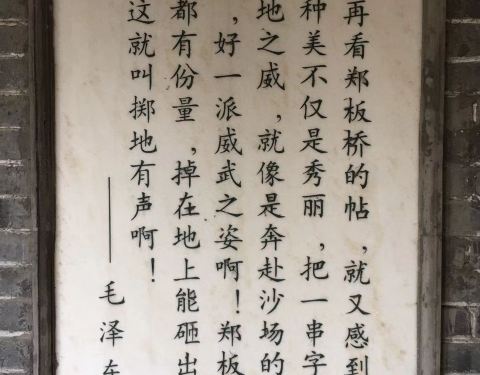 再看郑板桥的帖，就又感到
种美不仅是秀丽，把一串字
地之威，就像是奔赴沙场的
，好一派威武之姿啊！郑板
都有份量，掉在地上能砸出
这就叫掷地有声啊！
——毛泽东